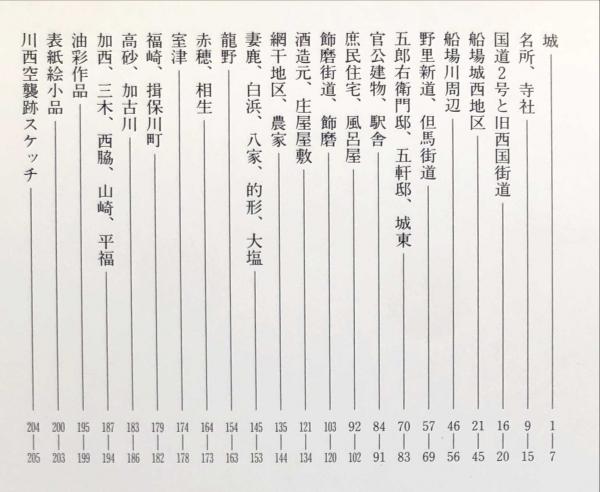 城 1―7
名所、寺社 9―15
国道2号と旧西国街道 16―20
船場城西地区 21―45
船場川周辺 46―56
野里新道、但馬街道 57―69
五郎右衛門邸、五軒邸、城東 70―83
官公建物、駅舎 84―91
庶民住宅、風呂屋 92―102
飾磨街道、飾磨 103―120
酒造元、庄屋屋敷 121―134
網干地区、農家 135―144
妻鹿、白浜、八家、的形、大塩 145―153
龍野 154―163
赤穂、相生 164―173
室津 174―178
福崎、揖保川町 179―182
高砂、加古川 183―186
加西、三木、西脇、山崎、平福 187―194
油彩作品 195―199
表紙絵小品 200―203
川西空襲跡スケッチ 204―205